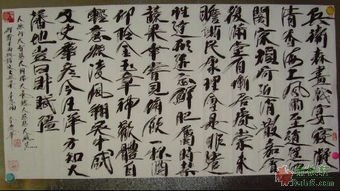 兵衛森畫戟宴寢凝
清香海上風雨至逍遙池
閣涼煩疴近消散嘉賓
復滿堂自慚居處崇未
瞻斯民康理會是非遣
性達形跡忘鮮肥屬時禁
蔬果幸見嘗俯飲一杯酒
仰聆金玉章神歡體自
輕意欲凌風翔吳中盛
文史群彥今汪洋方知大
藩地豈曰財賦疆